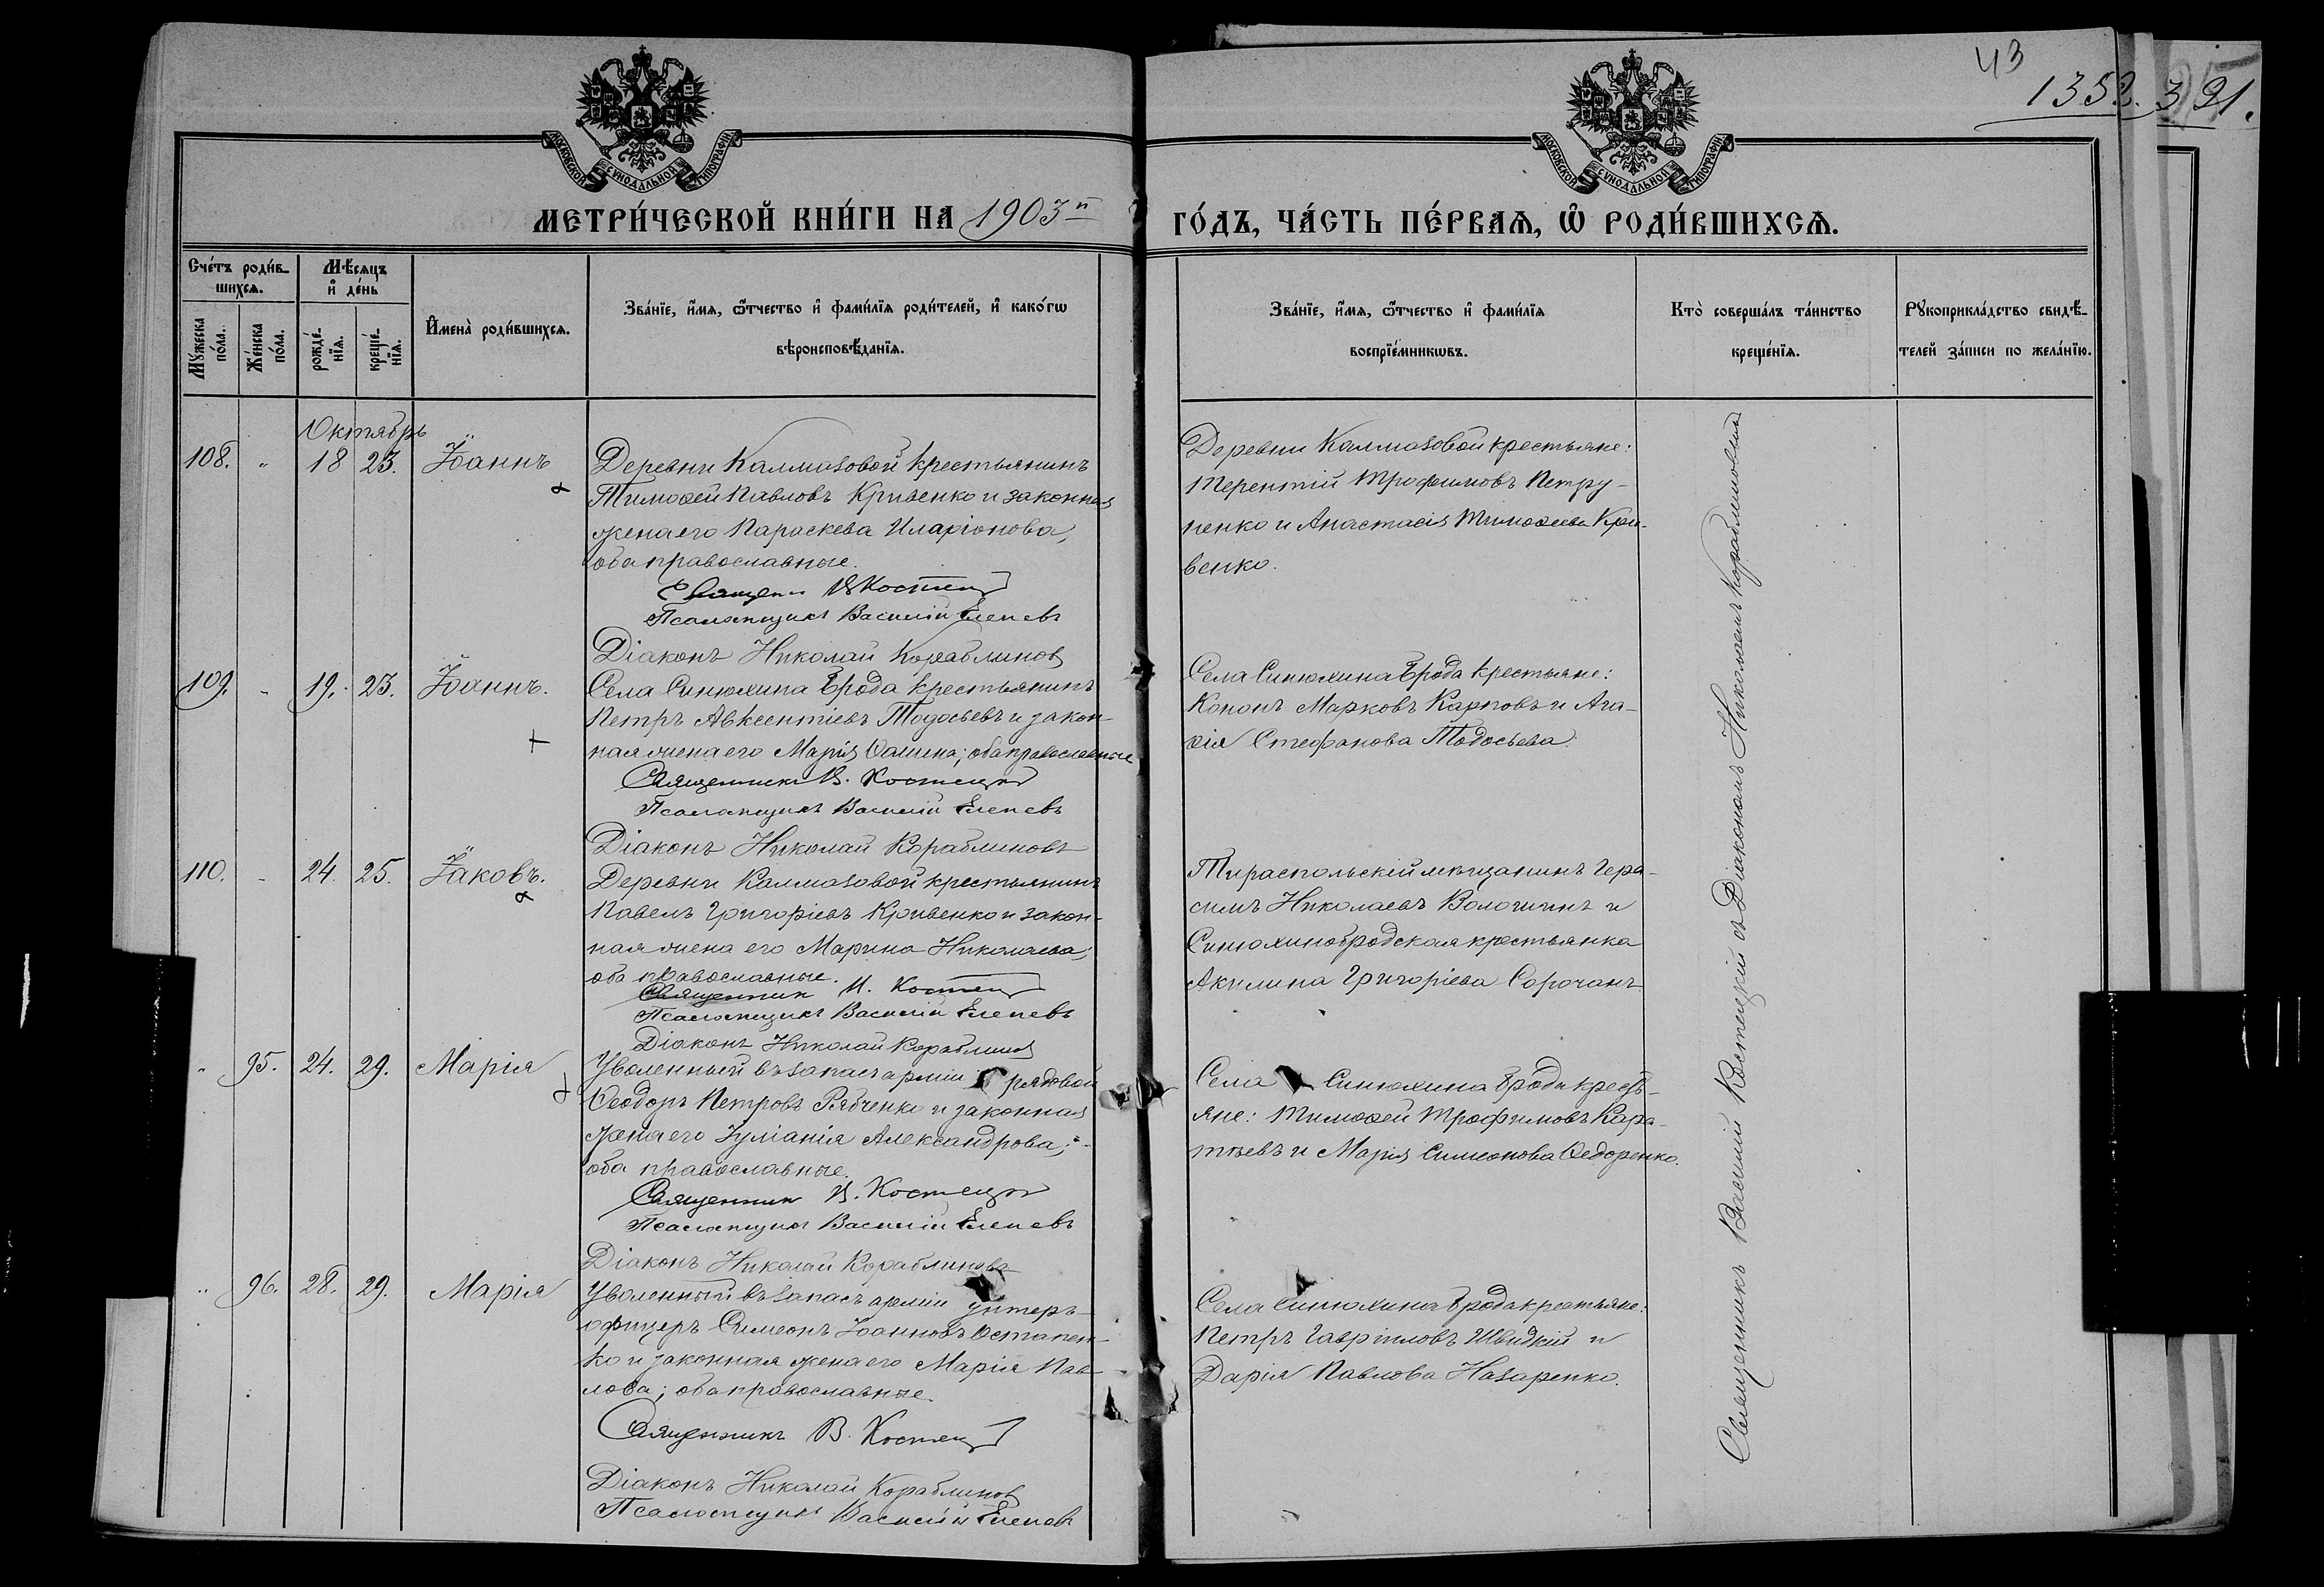 43
1352.
391.
МОСКОВСКОЙ СѴНОДАЛЬНОЙ ТИПОГРАФІИ
МОСКОВСКОЙ СѴНОДАЛЬНОЙ ТИПОГРАФІИ
МЕТРИ́ЧЕСКОЙ КНИ́ГИ НА 1903й
ГО́ДЪ, ЧА́СТЬ ПЕ́РВАѦ, Ѽ РОДИ́ВШИХСѦ.
Сче́тъ роди́в-
шихсѧ.
Мꙋ́жеска по́ла.
Же́нска по́ла.
Мѣ́сѧцъ
и҆ де́нь
рожде́-
нїѧ.
креще́-
нїѧ.
И҆мена̀ роди́вшихсѧ.
Зва́нїе, и҆́мѧ, ѻ҆́тчество и҆ фами́лїѧ роди́телей, и҆ како́гѡ
вѣроисповѣ́данїѧ.
Зва́нїе, и҆́мѧ, ѻ҆́тчество и҆ фами́лїѧ
воспрїе́мникѡвъ.
Кто̀ соверша́лъ та́инство
креще́нїѧ.
Рꙋкоприкла́дство свидѣ́-
телей за́писи по жела́нїю.
Октябрь
108. " 18 23. Іоаннъ
Деревни Калмазовой крестьянинъ
Тимоѳей Павловъ Кривенко и законная
жена его Параскева Иларіонова,
оба православные.
Священ. В Костец
Псаломщикъ Василій Елепевъ
Діаконъ Николай Кораблиновъ
Деревни Калмазовой крестьяне:
Терентій Трофимовъ Петру-
ненко и Анастасія Тимоѳеева Кри-
венко.
109. " 19. 23. Іоаннъ.
Села Синюхина Брода крестьянинъ
Петръ Авксентіевъ Тодосьевъ и закон-
ная жена его Марія Ѳомина; оба православные
Священникъ В. Костецкій
Псаломщикъ Василій Елепевъ
Діаконъ Николай Кораблиновъ
Села Синюхина Брода крестьяне:
Кононъ Марковъ Карповъ и Ага-
ѳія Стефанова Тодосьева.
110. " 24. 25. Іаковъ.
Деревни Калмазовой крестьянинъ
Павелъ Григорьевъ Кривенко и закон-
ная жена его Марина Николаева,
оба православные.
Священник В. Костец
Псаломщикъ Василій Елепевъ
Діаконъ Николай Кораблиновъ
Тираспольскій мѣщанинъ Гера-
симъ Николаевъ Волошинъ и
Синюхинобродская крестьянка
Акилина Григоріева Сорочанъ.
" 95. 24. 29. Марія
Уволенный въ запасъ арміи рядовой
Ѳеодоръ Петровъ Рябченко и законная
жена его Іуліанія Александрова;
оба православные.
Священник В. Костецкій
Псаломщикъ Василій Елепевъ
Діаконъ Николай Кораблиновъ
Села Синюхина Брода кресть-
яне: Тимоѳей Трофимовъ Кара-
и Марія Симеонова Ѳедоренко.
" 96. 28. 29. Марія
Уволенный въ запасъ арміи унтеръ-
офицеръ Симеонъ Іоанновъ Остапен-
ко и законная жена его Марія Пав-
лова; оба православные.
Священникъ В. Костец
Діаконъ Николай Кораблиновъ
Псаломщикъ Василій Елепевъ
Села Синюхина Брода крестьяне:
Петръ Гавріиловъ Швидкій и
Дарія Павлова Назаренко.
Священникъ Василій Костецкій съ Діакономъ Николаемъ Кораблиновымъ